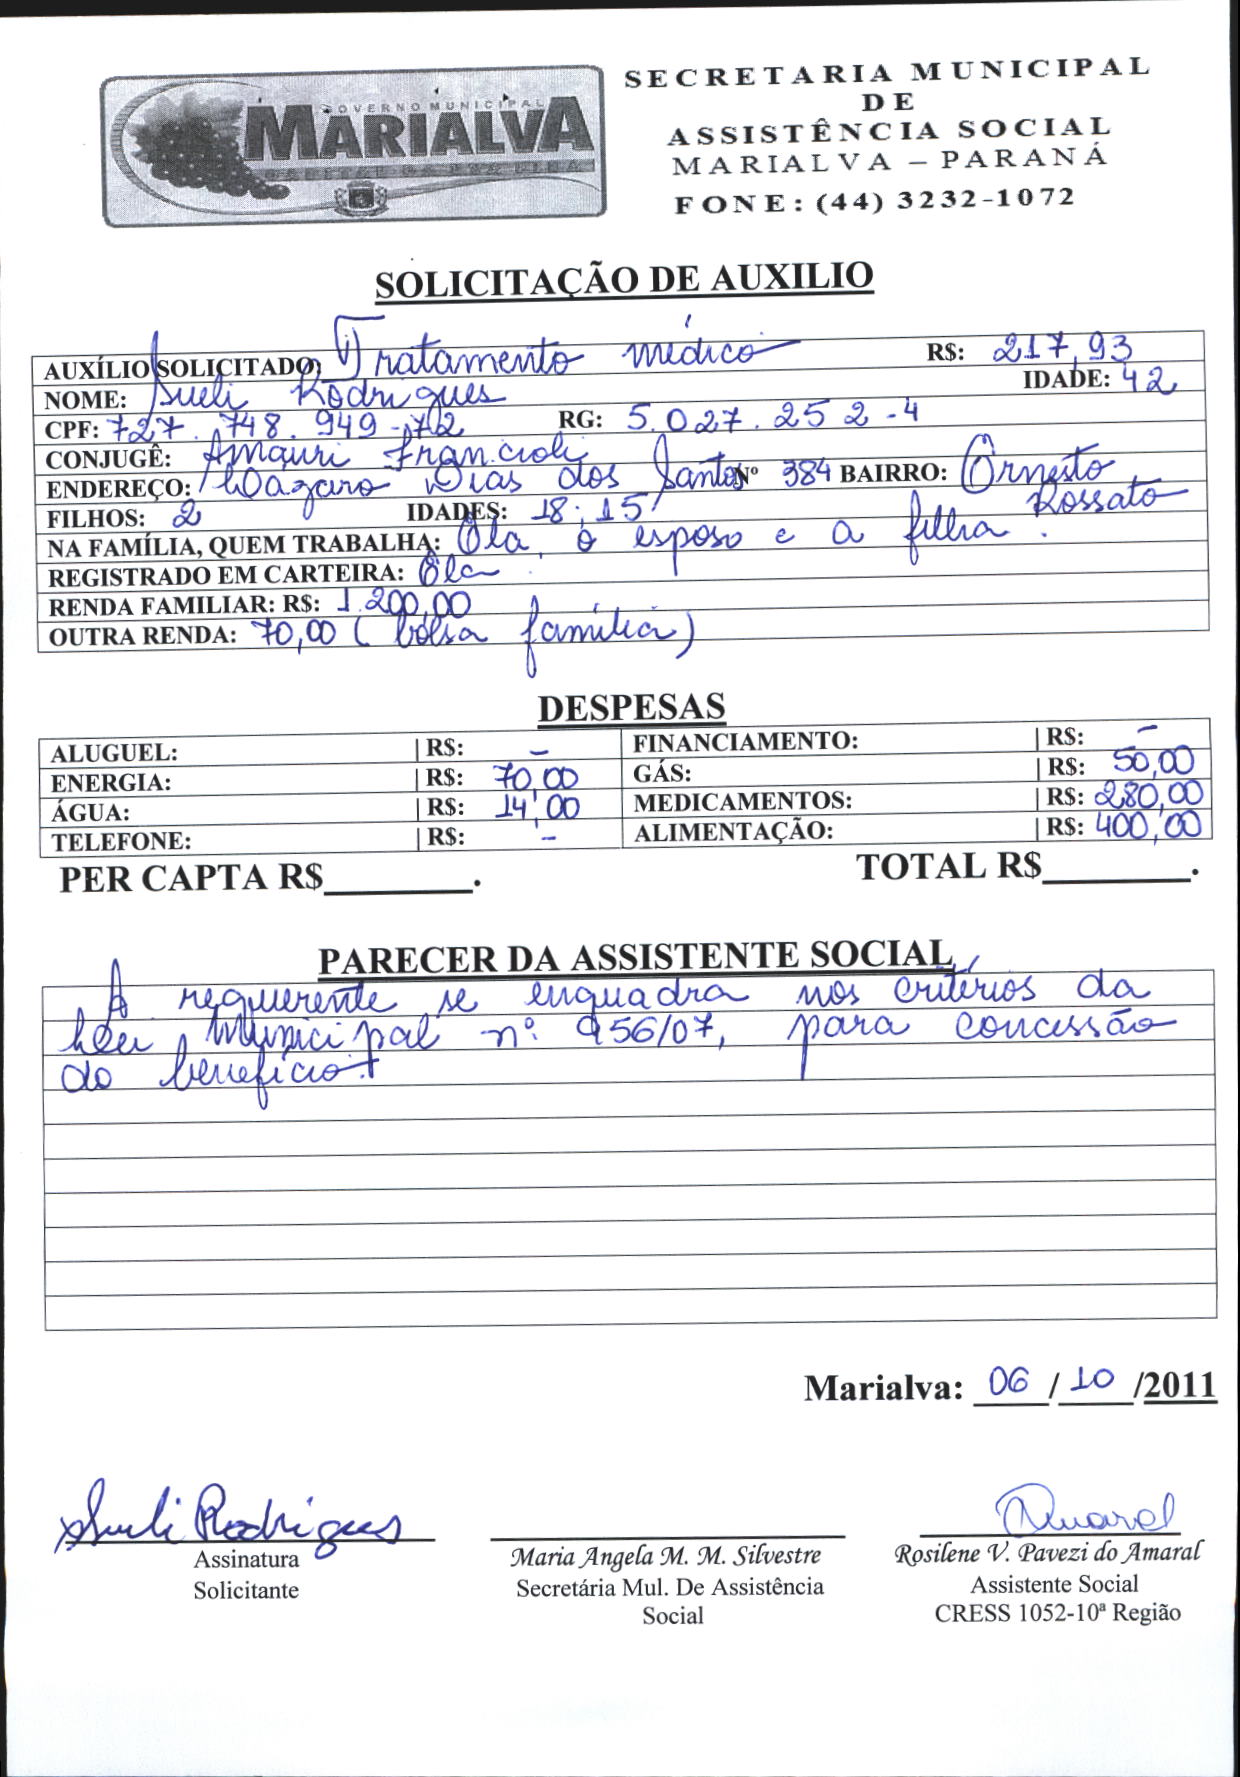 GOVERNO MUNICIPAL
MARIALVA
CAPITAL DA UVA FINA
SECRETARIA MUNICIPAL
DE
ASSISTÊNCIA SOCIAL
MARIALVA – PARANÁ
FONE: (44) 3232-1072
SOLICITAÇÃO DE AUXILIO
AUXÍLIO SOLICITADO: Tratamento médico R$: 217,93
NOME: Sueli Rodrigues IDADE: 42
CPF: 727.748.949-72 RG: 5.027.252-4
CONJUGÊ: Amauri Francioli
ENDEREÇO: Lázaro Dias dos Santos Nº 384 BAIRRO: Ernesto Rossato
FILHOS: 2 IDADES: 18; 15
NA FAMÍLIA, QUEM TRABALHA: Ela, o esposo e a filha.
REGISTRADO EM CARTEIRA: Ela
RENDA FAMILIAR: R$: 1.200,00
OUTRA RENDA: 70,00 (bolsa família)
DESPESAS
ALUGUEL: | R$: – FINANCIAMENTO: | R$: –
ENERGIA: | R$: 70,00 GÁS: | R$: 50,00
ÁGUA: | R$: 14,00 MEDICAMENTOS: | R$: 280,00
TELEFONE: | R$: – ALIMENTAÇÃO: | R$: 400,00
PER CAPTA R$________. TOTAL R$________.
PARECER DA ASSISTENTE SOCIAL
A requerente se enquadra nos critérios da
Lei Municipal nº 956/07, para concessão
do benefício.
Marialva: 06 / 10 /2011
Sueli Rodrigues
Assinatura
Solicitante
Maria Angela M. M. Silvestre
Secretária Mul. De Assistência
Social
Amaral
Rosilene V. Pavezi do Amaral
Assistente Social
CRESS 1052-10ª Região